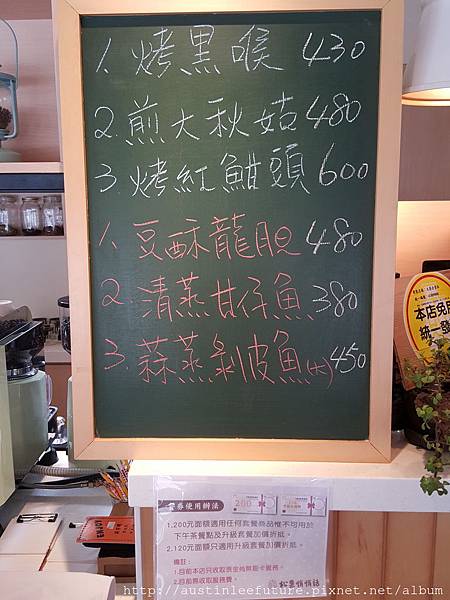 1. 烤黑喉 430
2. 煎大秋姑 480
3. 烤紅魽頭 600
1. 豆酥龍胆 480
2. 清蒸甘仔魚 380
3. 蒜蒸剝皮魚(大) 450
本店免
統一發
餐券使用辦法
200
1.200元面額適用任何套餐商品惟不可用於
下午茶餐點及升級套餐加價折抵。
2.120元面額只適用升級套餐加價折抵。
備註:
1.目前本店只收取現金尚無刷卡服務。
2.目前無收取服務費。
http://austinleefuture.pixnet.net/album